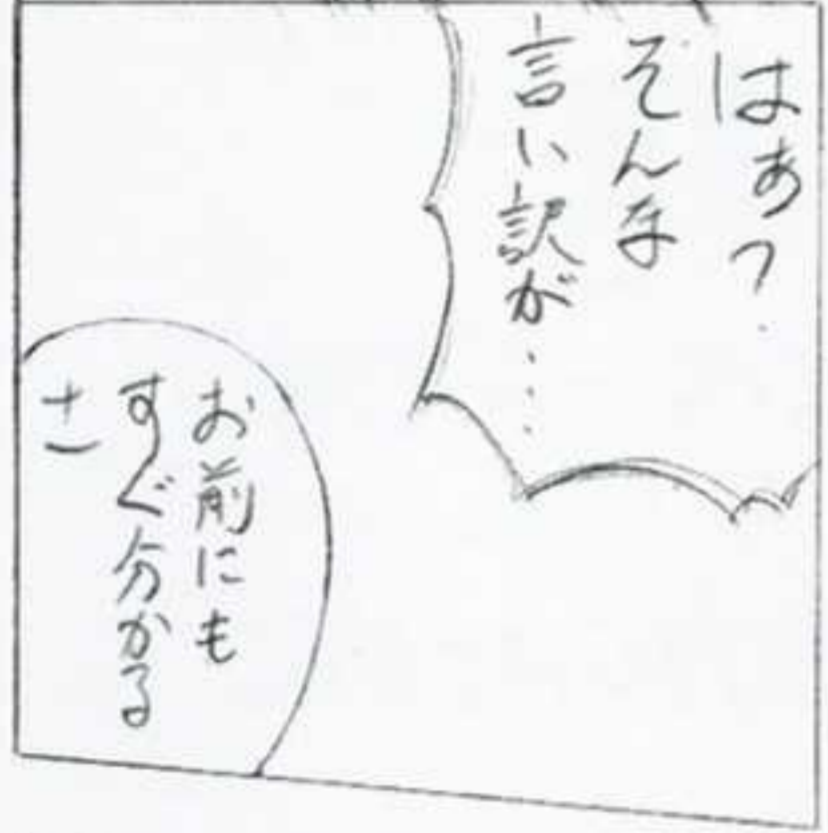 はぁ?
そんな
言い訳が....
お前にも
すぐ分かる
さ